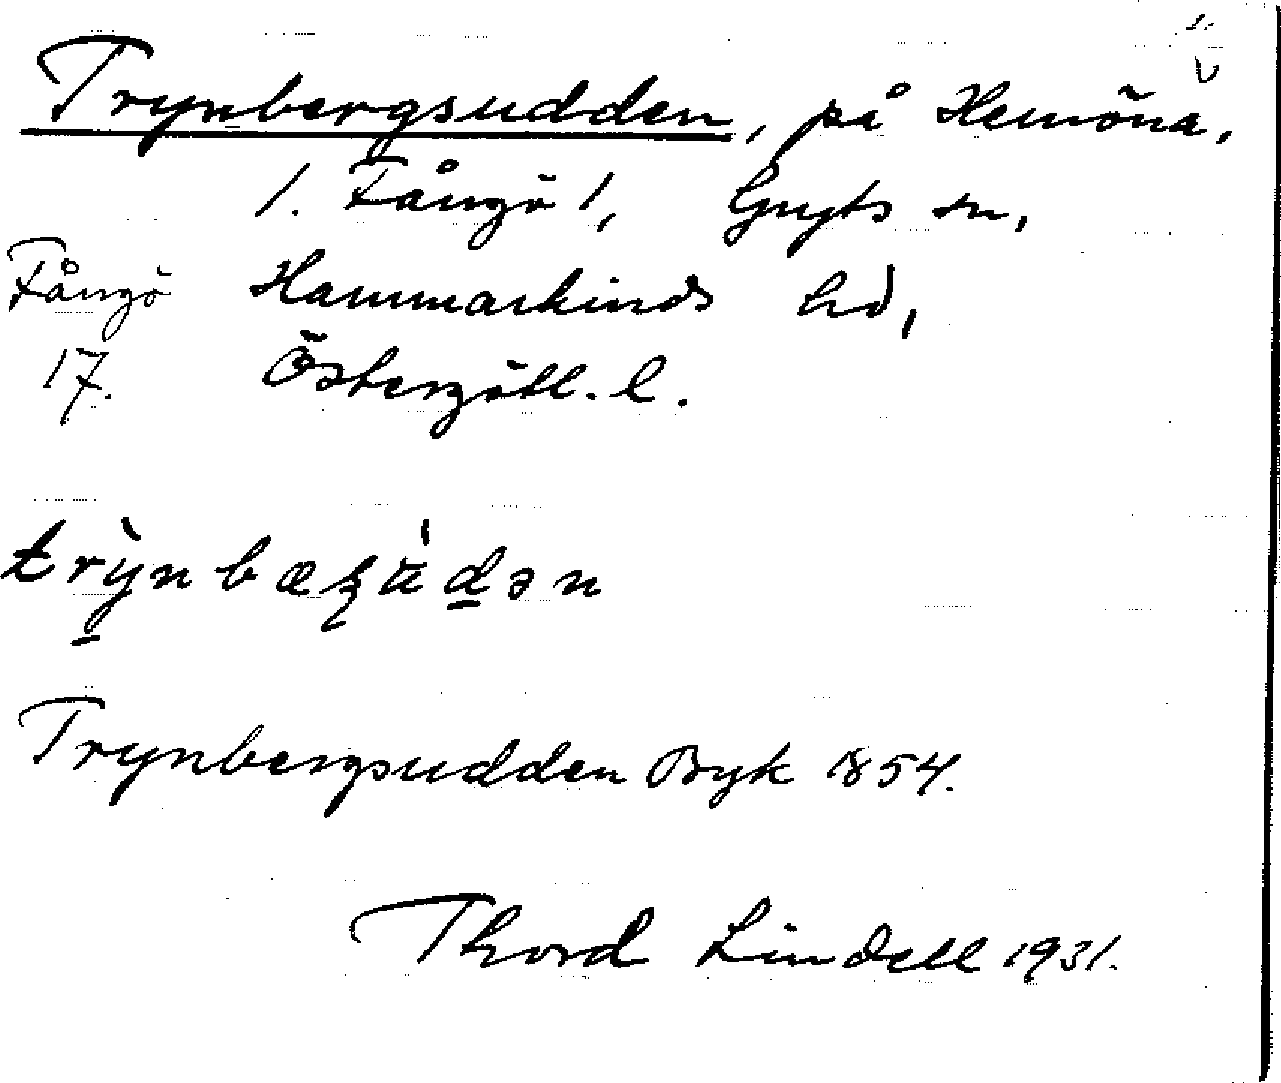 Trynbergsudden, på Hemöna,
1. Fångö 1, Gryts sn,
Fångö Hammarkinds hd,
17. Östergötl. l.
Trynbergsudden Byk 1854.
Thord Lindell 1931.